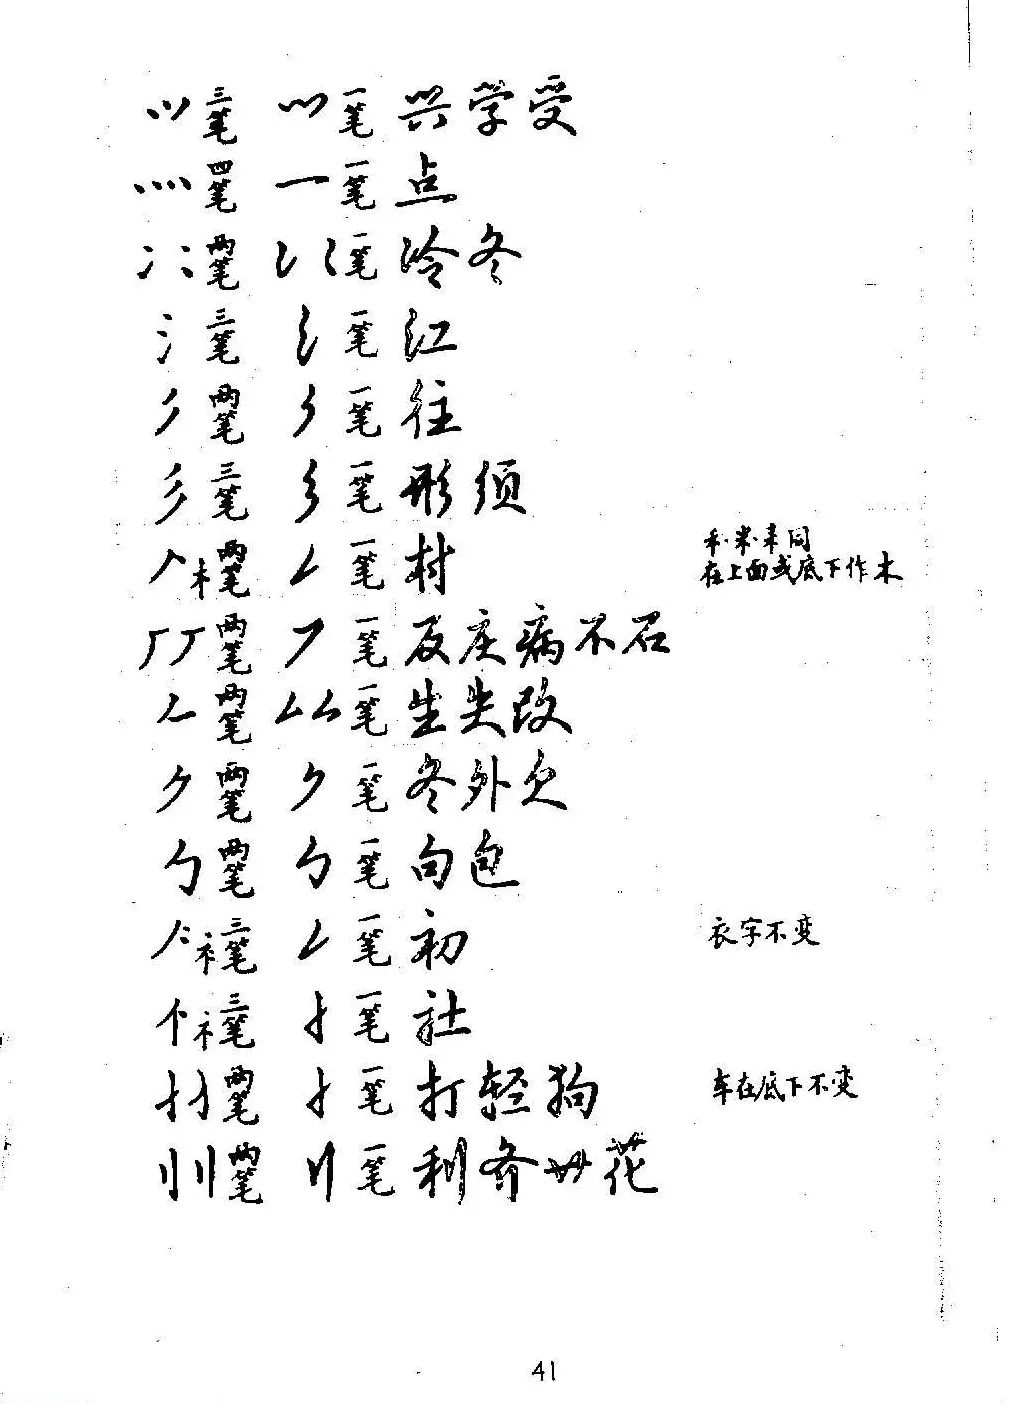 三笔 一笔 兴学受
四笔 一 一笔 点
两笔 一笔 冷冬
氵 三笔 一笔 江
两笔 一笔 往
彡 三笔 一笔 形须
木 两笔 一笔 村 禾·米·耒同
在上面或底下作木
厂 两笔 一笔 反庆病不石
𠂉 两笔 一笔 生失改
两笔 一笔 冬外欠
勹 两笔 一笔 句包
衤 三笔 一笔 初 衣字不变
礻 三笔 一笔 社
两笔 一笔 打轻狗 车在底下不变
刂 两笔 一笔 利齐花
41